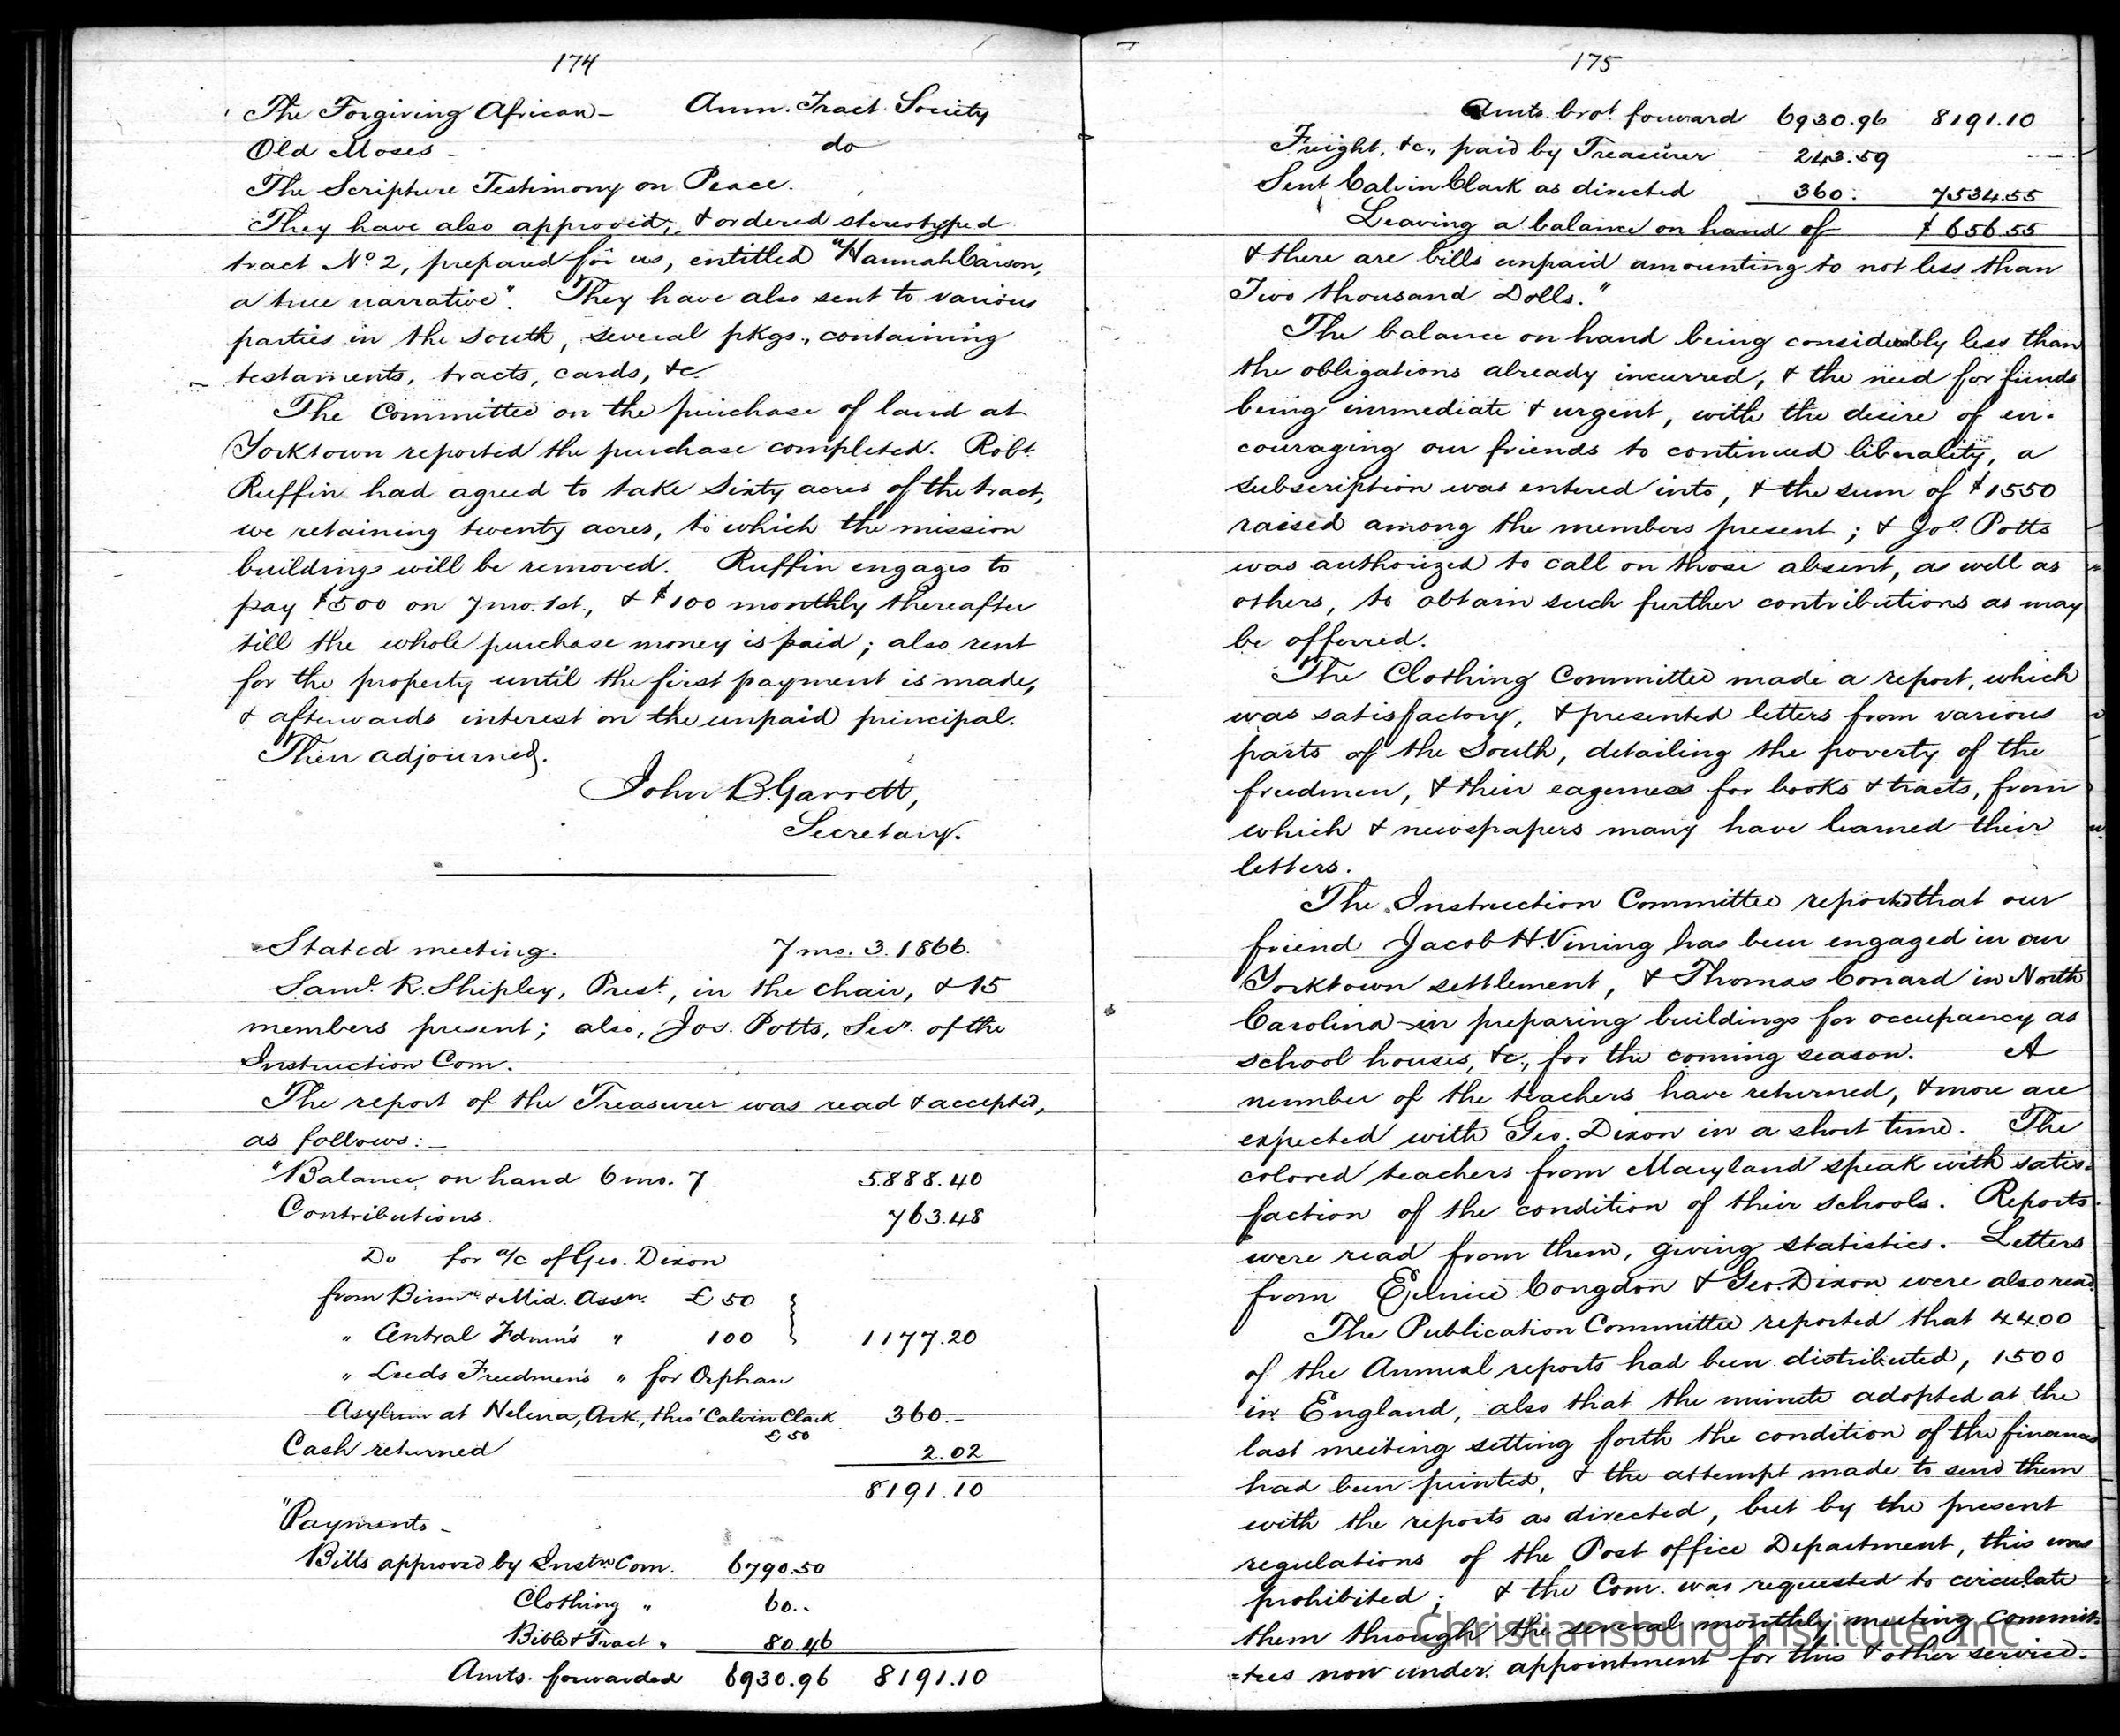 174
The Forgiving African — Amn. Tract Society
Old Moses — do
The Scripture Testimony on Peace.
They have also approved, & ordered stereotyped
tract No. 2, prepared for us, entitled "Hannah Carson,
a true narrative". They have also sent to various
parties in the south, several pkgs., containing
testaments, tracts, cards, &c.
The Committee on the purchase of land at
Yorktown reported the purchase completed. Robt.
Ruffin had agreed to take sixty acres of the tract,
we retaining twenty acres, to which the mission
buildings will be removed. Ruffin engages to
pay $500 on 7 mo. 1st., & $100 monthly thereafter
till the whole purchase money is paid; also rent
for the property until the first payment is made,
& afterwards interest on the unpaid principal.
Then adjourned.
John B. Garrett,
Secretary.
Stated meeting. 7 mo. 3. 1866.
Saml. R. Shipley, Prest., in the chair, & 15
members present; also, Jos. Potts, Secr. of the
Instruction Com.
The report of the Treasurer was read & accepted,
as follows: —
"Balance on hand 6 mo. 7 5.888.40
Contributions 763.48
Do for a/c of Geo. Dixon
from Birmm. & Mid. Assn. £50
" Central Fdmn's " 100 1177.20
" Leeds Freedmen's " for Orphan
Asylum at Helena, Ark., thro' Calvin Clark 360.—
£50
Cash returned 2.02
8191.10
"Payments —
Bills approved by Instn. Com. 6790.50
Clothing " 60..
Bible & Tract " 80.46
Amts. forwarded 6930.96 8191.10
175
Amts. brot. forward 6930.96 8191.10
Freight, &c., paid by Treasurer 243.59
Sent Calvin Clark as directed 360. 7534.55
Leaving a balance on hand of $656.55
& there are bills unpaid amounting to not less than
Two thousand Dolls."
The balance on hand being considerably less than
the obligations already incurred, & the need for funds
being immediate & urgent, with the desire of en-
couraging our friends to continued liberality, a
subscription was entered into, & the sum of $1550
raised among the members present; & Jos. Potts
was authorized to call on those absent, as well as
others, to obtain such further contributions as may
be offerred.
The Clothing Committee made a report, which
was satisfactory, & presented letters from various
parts of the South, detailing the poverty of the
freedmen, & their eagerness for books & tracts, from
which & newspapers many have learned their
letters.
The Instruction Committee reported that our
friend Jacob H. Vining has been engaged in our
Yorktown settlement, & Thomas Conard in North
Carolina in preparing buildings for occupancy as
school houses, &c., for the coming season. A
number of the teachers have returned, & more are
expected with Geo. Dixon in a short time. The
colored teachers from Maryland speak with satis-
faction of the condition of their schools. Reports
were read from them, giving statistics. Letters
from Eunice Congdon & Geo. Dixon were also read.
The Publication Committee reported that 4400
of the Annual reports had been distributed, 1500
in England, also that the minute adopted at the
last meeting setting forth the condition of the finances
had been printed, & the attempt made to send them
with the reports as directed, but by the present
regulations of the Post office Department, this was
prohibited; & the Com. was requested to circulate
them through the several monthly meeting commit-
=tees now under appointment for this & other service.
Christiansburg Institute, Inc